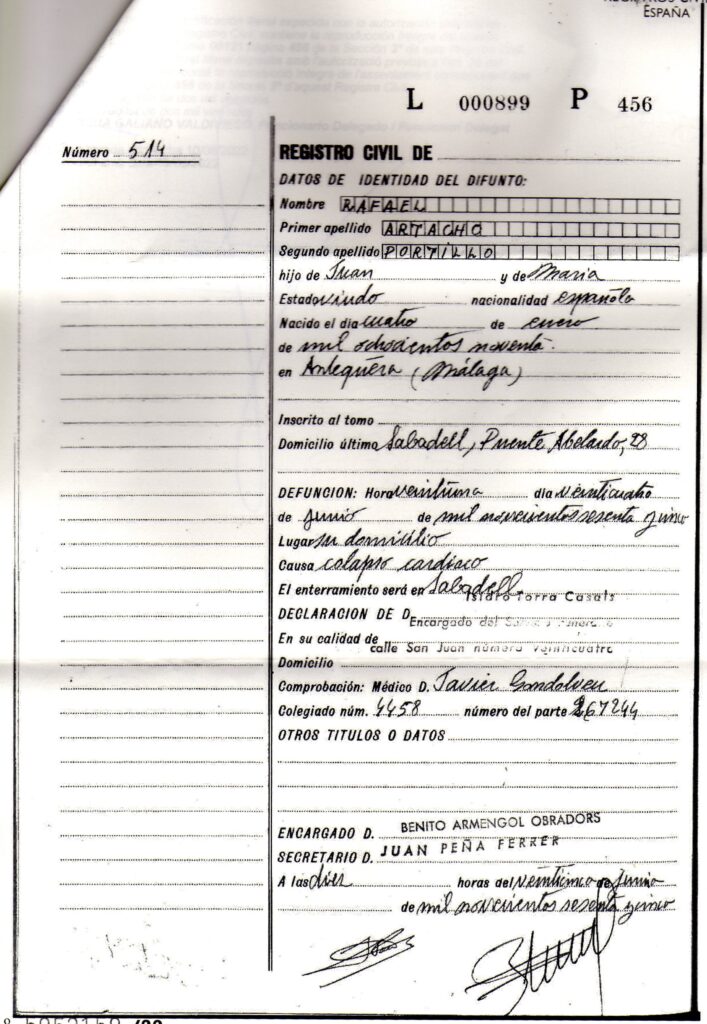 REGISTROS CIVI
ESPAÑA
L 000899 P 456
Número 514
REGISTRO CIVIL DE
DATOS DE IDENTIDAD DEL DIFUNTO:
Nombre RAFAEL
Primer apellido ARTACHO
Segundo apellido PORTILLO
hijo de Juan y de Maria
Estado viudo nacionalidad española
Nacido el dia cuatro de enero
de mil ochocientos noventa.
en Antequera (Málaga)
Inscrito al tomo
Domicilio última Sabadell, Puente Abelardo, 28
DEFUNCION: Hora veintiuna dia veinticuatro
de junio de mil novecientos sesenta y cinco
Lugar su domicilio
Causa colapso cardiaco
El enterramiento será en Sabadell
Isidro Torra Casals
DECLARACION DE D. Encargado del
En su calidad de calle San Juan número veinticuatro
Domicilio
Comprobación: Médico D. Javier
Colegiado núm. 4458 número del parte 267244
OTROS TITULOS O DATOS
ENCARGADO D. BENITO ARMENGOL OBRADORS
SECRETARIO D. JUAN PEÑA FERRER
A las diez horas del veinticinco de junio
de mil novecientos sesenta y cinco